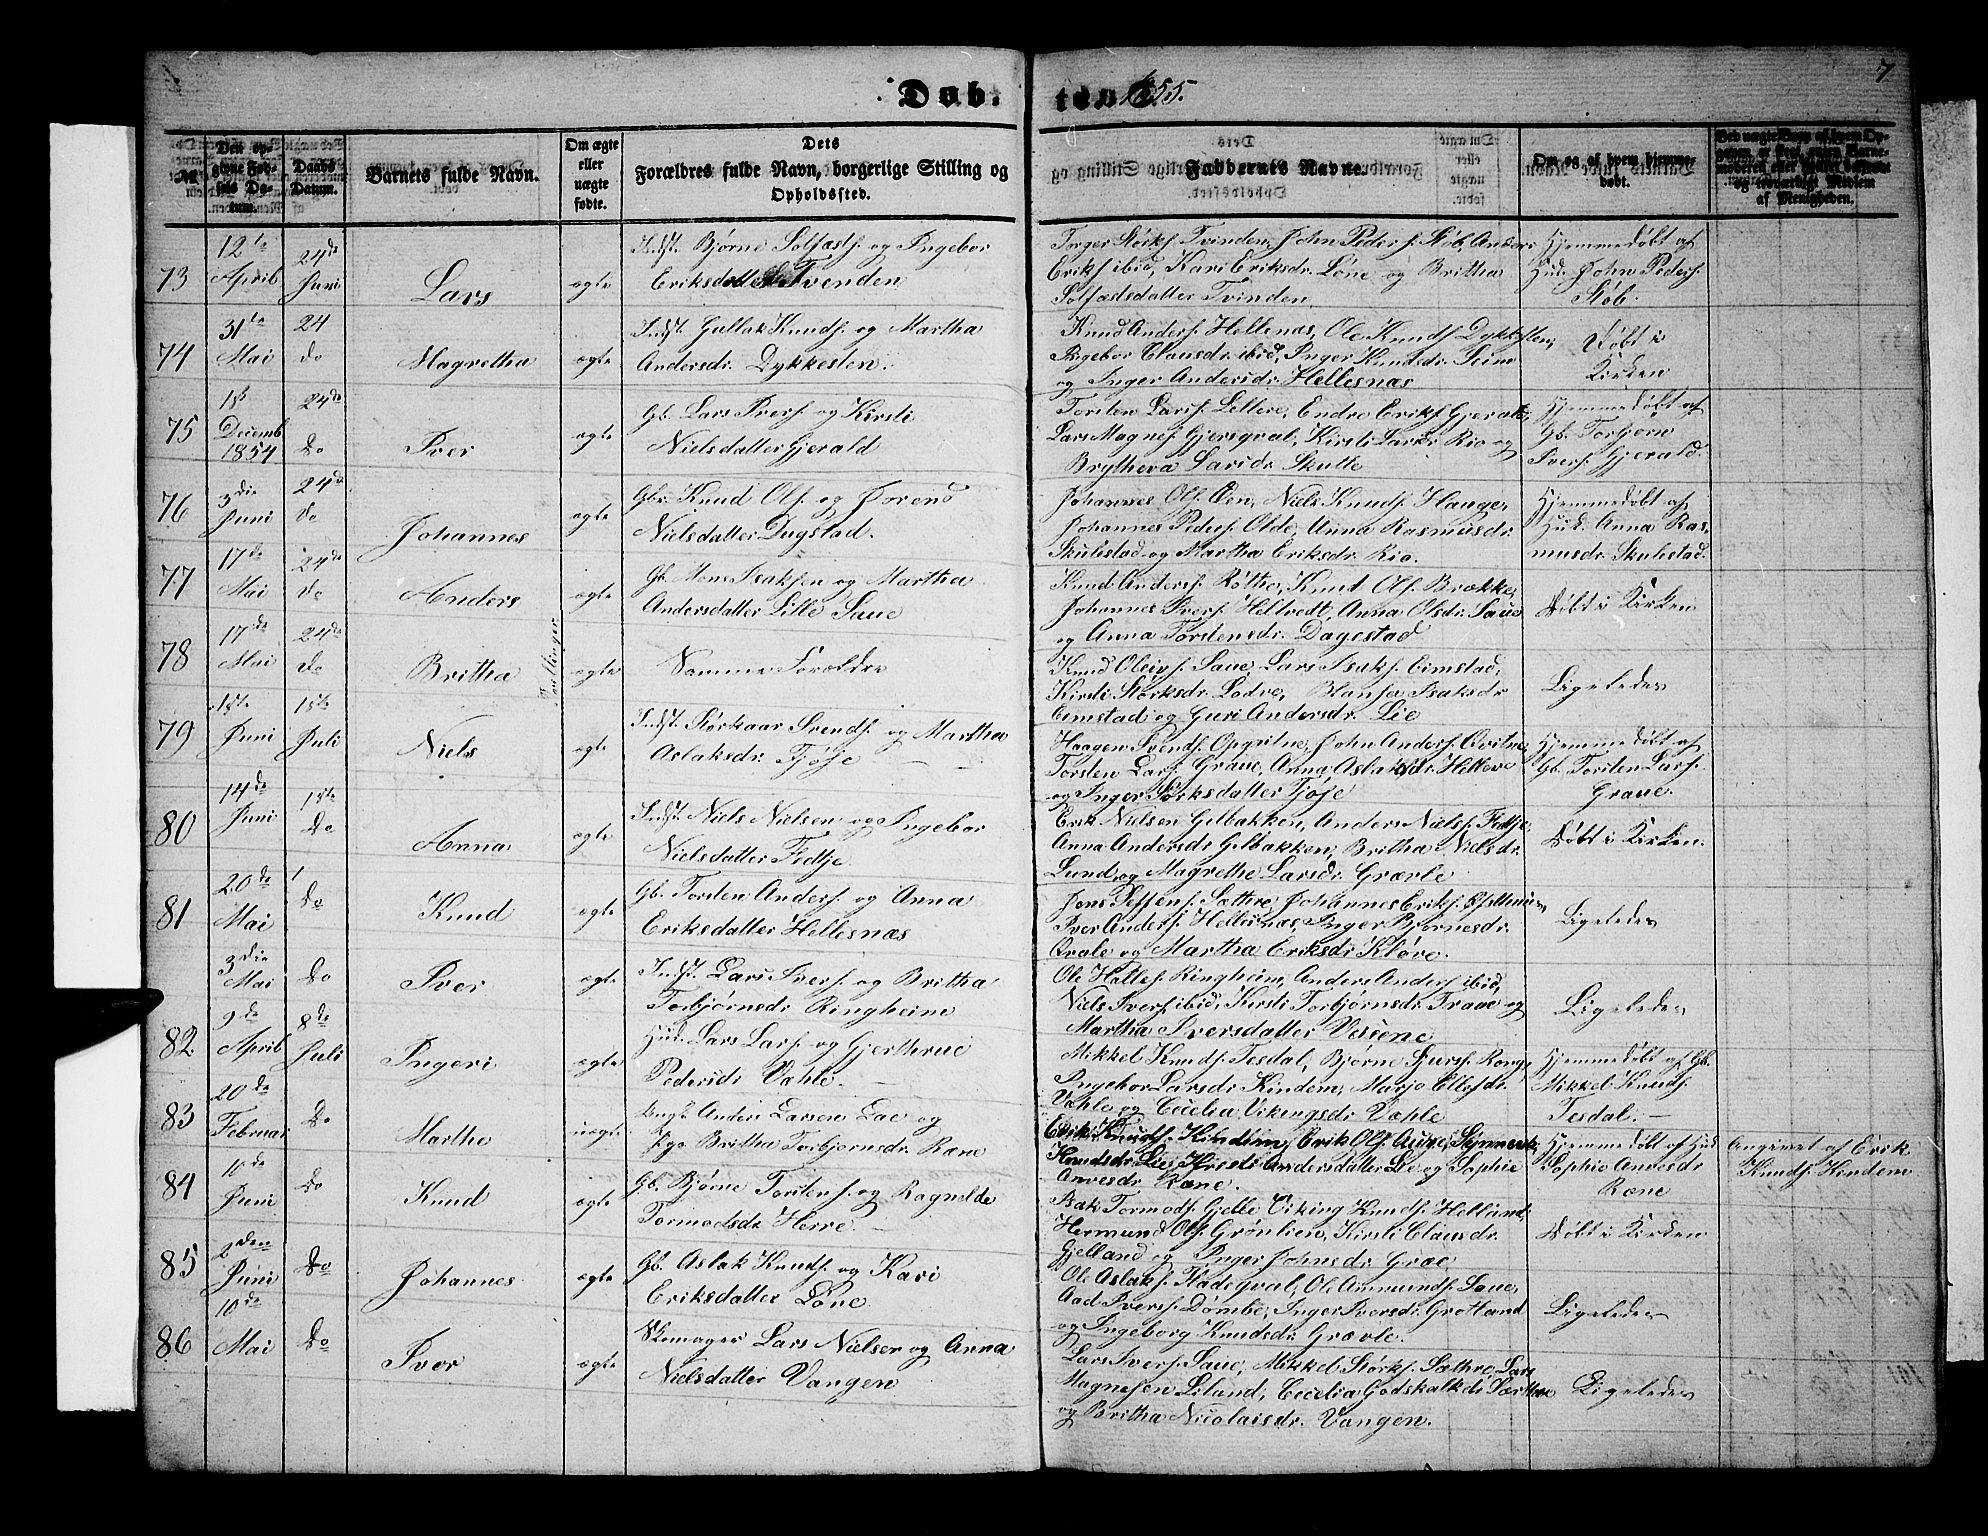 Døb. 
1855.
7
Den op-
givne Fød-
sels Da-
tum.
Daabs
Datum.
Barnets fulde Navn.
Om ægte
eller
uægte
fødte.
Dets
Forældres fulde Navn, borgerlige Stilling og
Opholdssted.
Faddernes Navne.
Om og af hvem hjemme-
døbt.
af Menigheden.
73
12te
April
24de
Juni
Lars
ægte
Indst. Bjørne Solfæstf. og Ingebor
Eriksdatter Tvinden
Torger Størkf. Tvinden, John Peder f. Støb, Anders
Erikf ibid, Kari Eriksdr. Løne og Britha
Solfæstsdatter Tvinden
Hjemmedøbt af
Hud. John Pedersf.
Støb.
74
31te
Mai
24
do
Magretha
ægte
Indst. Gullak Knudsf. og Martha
Andersdr. Dykkesten.
Knud Andersf. Hellenæs, Ole Knudsf Dykkesten,
Ingebor Clausdr. ibid, Inger Knudsdr.
og Inger Andersdr. Hellesnæs
Døbt i
Kirken
75
18
Decemb
1854
24de
Do
Iver
ægte
Gb. Lars Iversf. og Kirsti
Nielsdatter Gjerald
Torsten Larsf. Lillere, Endre Erikf Gjerald,
Lars Magnef. Gjersqval, Kirsti Larsdr. Rio og
Brytheva Larsdr. Skutle
Hjemmedøbt af
Gb. Torbjørn
Iversf. Gjerald.
76
3die
Juni
24de
do
Johannes
ægte
Gbr. Knud Olf. og
Nielsdatter Dugstad.
Johannes Olf. Øen, Niels Knudsf. Hauge,
Johannes Pedersf. Olde, Anna Rasmusdr.
Skulestad og Martha Eriksdr. Rio.
Hjemmedøbt af
Hud. Anna Ras-
musdr. Skulestad.
77
17de
Mai
24de
do
Anders
Tvillinger
ægte
Gb. Mons Isaksen og Martha
Andersdatter Lille Saue
Knud Andersf. Røthe, Knut Olf. Brække,
Johannes Iversf. Heltvedt, Anna Olsdr. Saue
og Anna Torstensdr. Dagestad
Døbt i Kirken
78
17de
Mai
24de
do
Britha
ægte
Samme Forældre
Knud Oleivf. Saue, Lars Isakf. Eimstad,
Kirsti Størksdr. Lødve, Isaksdr
Eimstad og Guri Andersdr. Lie
Ligeledes
79
Juni
15te
Juli
Niels
ægte
Indst. Størkaar Svendsf. og Martha
Aslaksdr. Tjøje
Haagen Svendsf. Opqvitne, John Andersf. Qvitne,
Torsten Larsf. Graue, Anna Aslaksdr. Helleve
og Inger Størksdatter Tjøje
Hjemmedøbt af
Gb. Torsten Larsf.
Graue.
80
14de
Juni
15te
Do
Anna
ægte
Indst. Niels Nielsen og Ingebor
Nielsdatter Fedtje
Erik Nielsen Gilbakken, Anders Nielsf. Fedtje,
Anna Andersdr Gilbakken, Britha Nielsdr.
Lund, og Magrethe Larsdr. Grævle
Døbt i Kirken.
81
20de
Mai
Do
Knud
ægte
Gb. Torsten Andersf. og Anna
Eriksdatter Hellesnæs
Jens Sæthre, Johannes Erikf.
Iver Andersf. Hellesnæs, Inger Bjørnesdr.
Qvale og Martha Eriksdr. Kløve.
Ligeledes
3die
Mai
Do
Iver
ægte
Indst. Lars Iversf. og Britha
Torbjørnsdr. Ringheim
Ole Hallef. Ringheim, Anders Andersf ibid,
Niels Iversf ibid, Kirsti Torbjørnsdr. Traae og
Martha Iversdatter
Ligeledes
82
9de
April
8de
Juli
Ingeri
ægte
Hud. Lars Larsf og Gjerthrue
Pedersdr Væhle.
Mikkel Knudsf. Tesdal, Bjørne Sjursf. Ronge
Ingebor Larsdr. Kindem, Marjo Ellefdr.
Væhle og Cecelia Vikingsdr. Væhle
Hjemmedøbt af Gb.
Mikkel Knudsf
Tesdal.
83
20de
Februar
Do
Marthe
uægte
Ungk. Anders Larsen og
Pge Britha Torbjørnsdr. Ræne
Erik Knudsf. Kindem, Erik Olf. Synneve
Knudsdr. Lie, Kirsti Andersdatter Lie og Sophie
Anvesdr Ræne.
Hjemmedøbt af Hud
Sophie Anvesdr
Ræne
Angivet af Erik
Knudsf. Kindem
84
10de
Juni
Do
Knud
ægte
Gb. Bjørne Torstensf. og Ragnilde
Tormodsdr Herre
Isak Tormodf. Gjelle, Viking Knudsf. Helland,
Hermund Olf. Grønlien, Kirsti Clausdr.
Gjelland og Inger Johnsdr. Græe
Døbt i Kirken
85
2den
Juni
Do
Johannes
ægte
Gb. Aslak Knudsf. og Kari
Eriksdatter Løne
Ole Aslakf. Fladeqval, Ole Ammundsf. Saue,
Aad Iversf. Dømbe, Inger Iversdr. Grotland
og Ingeborg Knudsdr. Grævle.
Ligeledes
86
10de
Mai
Do
Iver
ægte
Skomager Lars Nielsen og Anna
Nielsdatter Vangen
Lars Iversf. Saue, Mikkel Størkf. Sæthre, Lars
Magnesen Liland, Cecelia Godskalksdr. Sæthre
og Britha Nicolaisdr. Vangen.
Ligeledes